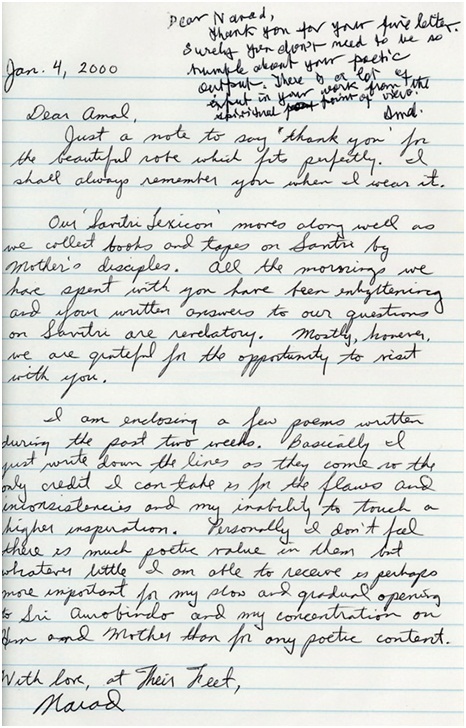 Dear Narad,
Thank you for your fine letter.
Surely you don't need to be so
humble about your poetic
output. There is a lot of
in your work from the
spiritual point of view.
Amal.
Jan. 4, 2000
Dear Amal,
Just a note to say "thank you" for
the beautiful robe which fits perfectly. I
shall always remember you when I wear it.
Our 'Savitri Lexicon' moves along well as
we collect books and tapes on Savitri by
Mother's disciples. All the mornings we
have spent with you have been enlightening
and your written answers to our questions
on Savitri are revelatory. Mostly, however,
we are grateful for the opportunity to visit
with you.
I am enclosing a few poems written
during the past two weeks. Basically I
just write down the lines as they come so the
only credit I can take is for the flaws and
inconsistencies and my inability to touch a
higher inspiration. Personally I don't feel
there is much poetic value in them but
whatever little I am able to receive is perhaps
more important for my slow and gradual opening
to Sri Aurobindo and my concentration on
Him and Mother than for any poetic content.
With love, at Their Feet,
Narad